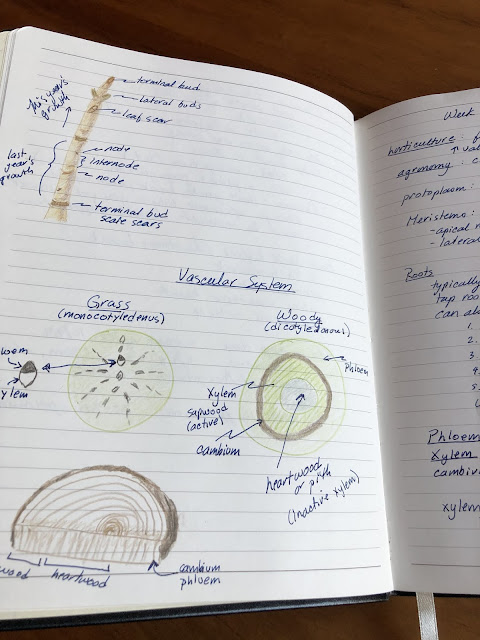 terminal bud
lateral buds
leaf scar
this year's
growth
node
internode
node
last
year's
growth
terminal bud
scale scars
Vascular System
Grass
(monocotyledenus)
Woody
(dicotyledonous)
phloem
xylem
sapwood
(active)
cambium
heartwood
or pith
(inactive xylem)
ylem
wood
heartwood
cambium
phloem
Week
horticulture:
agronomy: c
protoplasm:
Meristems:
-apical m
-lateral
Roots
typically
tap roo
can al
1.
2.
3.
4.
5.
Phloem
Xylem
cambiu
xylem